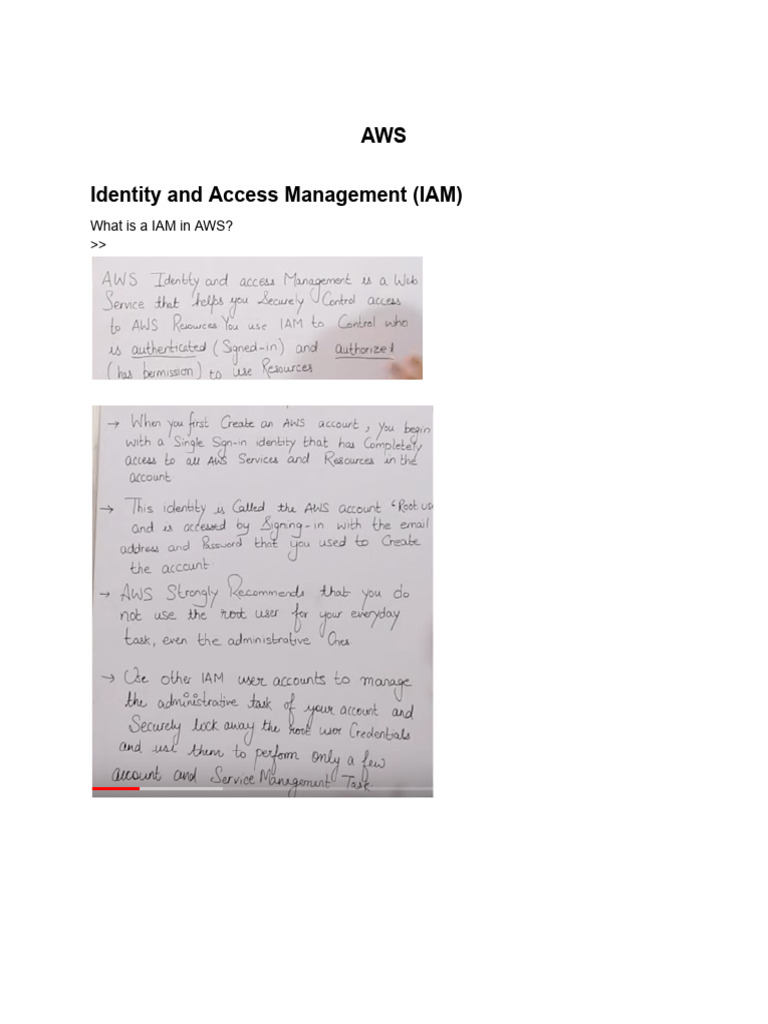 AWS
Identity and Access Management (IAM)
What is a IAM in AWS?
>>
AWS Identity and access Management is a Web
Service that helps you Securely Control access
to AWS Resources You use IAM to Control who
is authenticated (Signed-in) and authorized
(has permission) to use Resources
→ When you first Create an AWS account, you begin
with a Single Sign-in identity that has Completely
access to all AWS Services and Resources in the
account
→ This identity is Called the AWS account "Root us
and is accessed by Signing-in with the email
address and Password that you used to Create
the account
→ AWS Strongly Recommends that you do
not use the root user for your everyday
task, even the administrative Ones
→ Use other IAM user accounts to manage
the administrative task of your account and
Securely lock away the root user Credentials
and use them to perform only a few
account and Service Management Task.